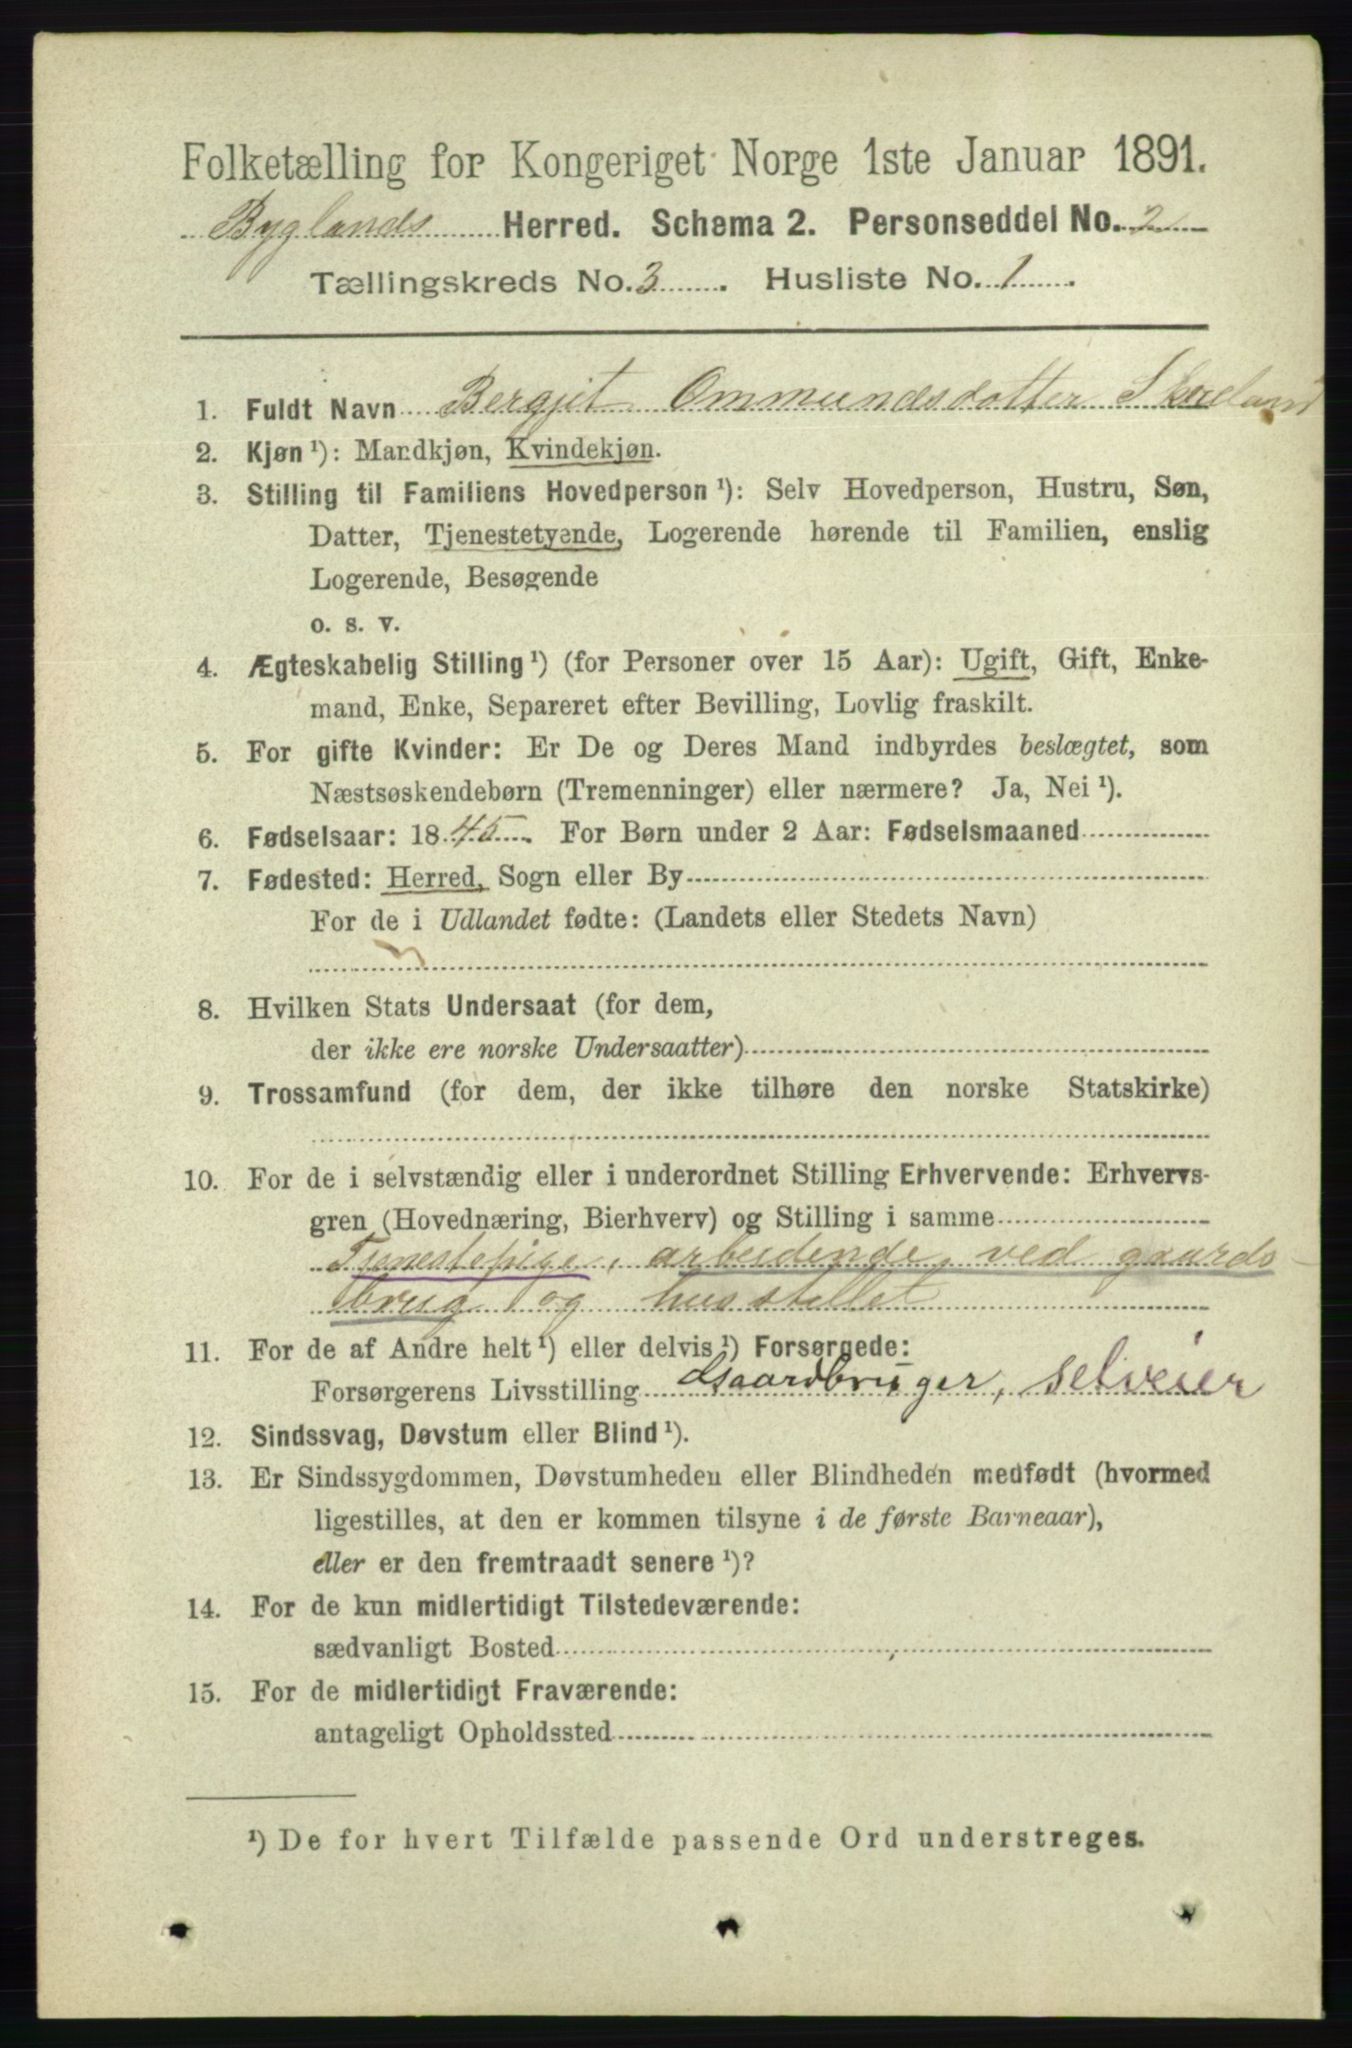 Folketælling for Kongeriget Norge 1ste Januar 1891.
Byglands Herred. Schema 2. Personseddel No. 2
Tællingskreds No. 3. Husliste No. 1.
1. Fuldt Navn Bergjit Ommundsdatter Skreland
2. Kjøn ¹): Mandkjøn, Kvindekjøn.
3. Stilling til Familiens Hovedperson ¹): Selv Hovedperson, Hustru, Søn,
Datter, Tjenestetyende, Logerende hørende til Familien, enslig
Logerende, Besøgende
o. s. v.
4. Ægteskabelig Stilling ¹) (for Personer over 15 Aar): Ugift, Gift, Enke-
mand, Enke, Separeret efter Bevilling, Lovlig fraskilt.
5. For gifte Kvinder: Er De og Deres Mand indbyrdes beslægtet, som
Næstsøskendebørn (Tremenninger) eller nærmere? Ja, Nei ¹).
6. Fødselsaar: 1845. For Børn under 2 Aar: Fødselsmaaned
7. Fødested: Herred, Sogn eller By
For de i Udlandet fødte: (Landets eller Stedets Navn)
8. Hvilken Stats Undersaat (for dem,
der ikke ere norske Undersaatter)
9. Trossamfund (for dem, der ikke tilhøre den norske Statskirke)
10. For de i selvstændig eller i underordnet Stilling Erhvervende: Erhvervs-
gren (Hovednæring, Bierhverv) og Stilling i samme
Tjenestepige, arbeidende ved gaards-
brug og husstellet
11. For de af Andre helt ¹) eller delvis ¹) Forsørgede:
Forsørgerens Livsstilling Gaardbruger, selveier
12. Sindssvag, Døvstum eller Blind ¹).
13. Er Sindssygdommen, Døvstumheden eller Blindheden medfødt (hvormed
ligestilles, at den er kommen tilsyne i de første Barneaar),
eller er den fremtraadt senere ¹)?
14. For de kun midlertidigt Tilstedeværende:
sædvanligt Bosted
15. For de midlertidigt Fraværende:
antageligt Opholdssted
¹) De for hvert Tilfælde passende Ord understreges.